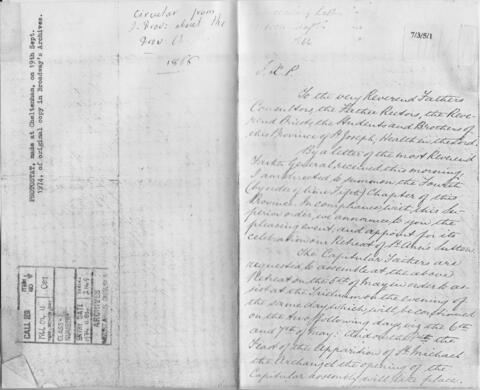 Circular from
J. Prov. about the
Prov. Ch
1866
PHOTOSTAT, made at Cheltenham, on 19th Sept.
1974, of original copy in Broadway's Archives.
CALL NO
CLASS
NUMBER
ENTRY DATE
ARCHIVES
7/3/5/1
J. X. P.
To the very Reverend Fathers
Consultors, the Father Rectors, the Reve-
rend Priests, the Students and Brothers of
this Province of St Joseph, Health in the Lord.
By a letter of the most Reverend
Father General received this morning,
I am directed to summon the Fourth
Chapter of this
Province. In compliance with this Su-
perior order, we announce to you the
pleasing event, and appoint for its
celebration our Retreat of St Ann's Sutton.
The Capitular Fathers are
requested to assemble at the above
Retreat on the 5th of May in order to as-
sist at the Triduum on the evening of
the same day, which will be continued
on the two following days, viz the 6th
and 7th of May. And on the 8th the
Feast of the Apparition of St Michael
the Archangel the opening of the
Capitular assembly will take place.